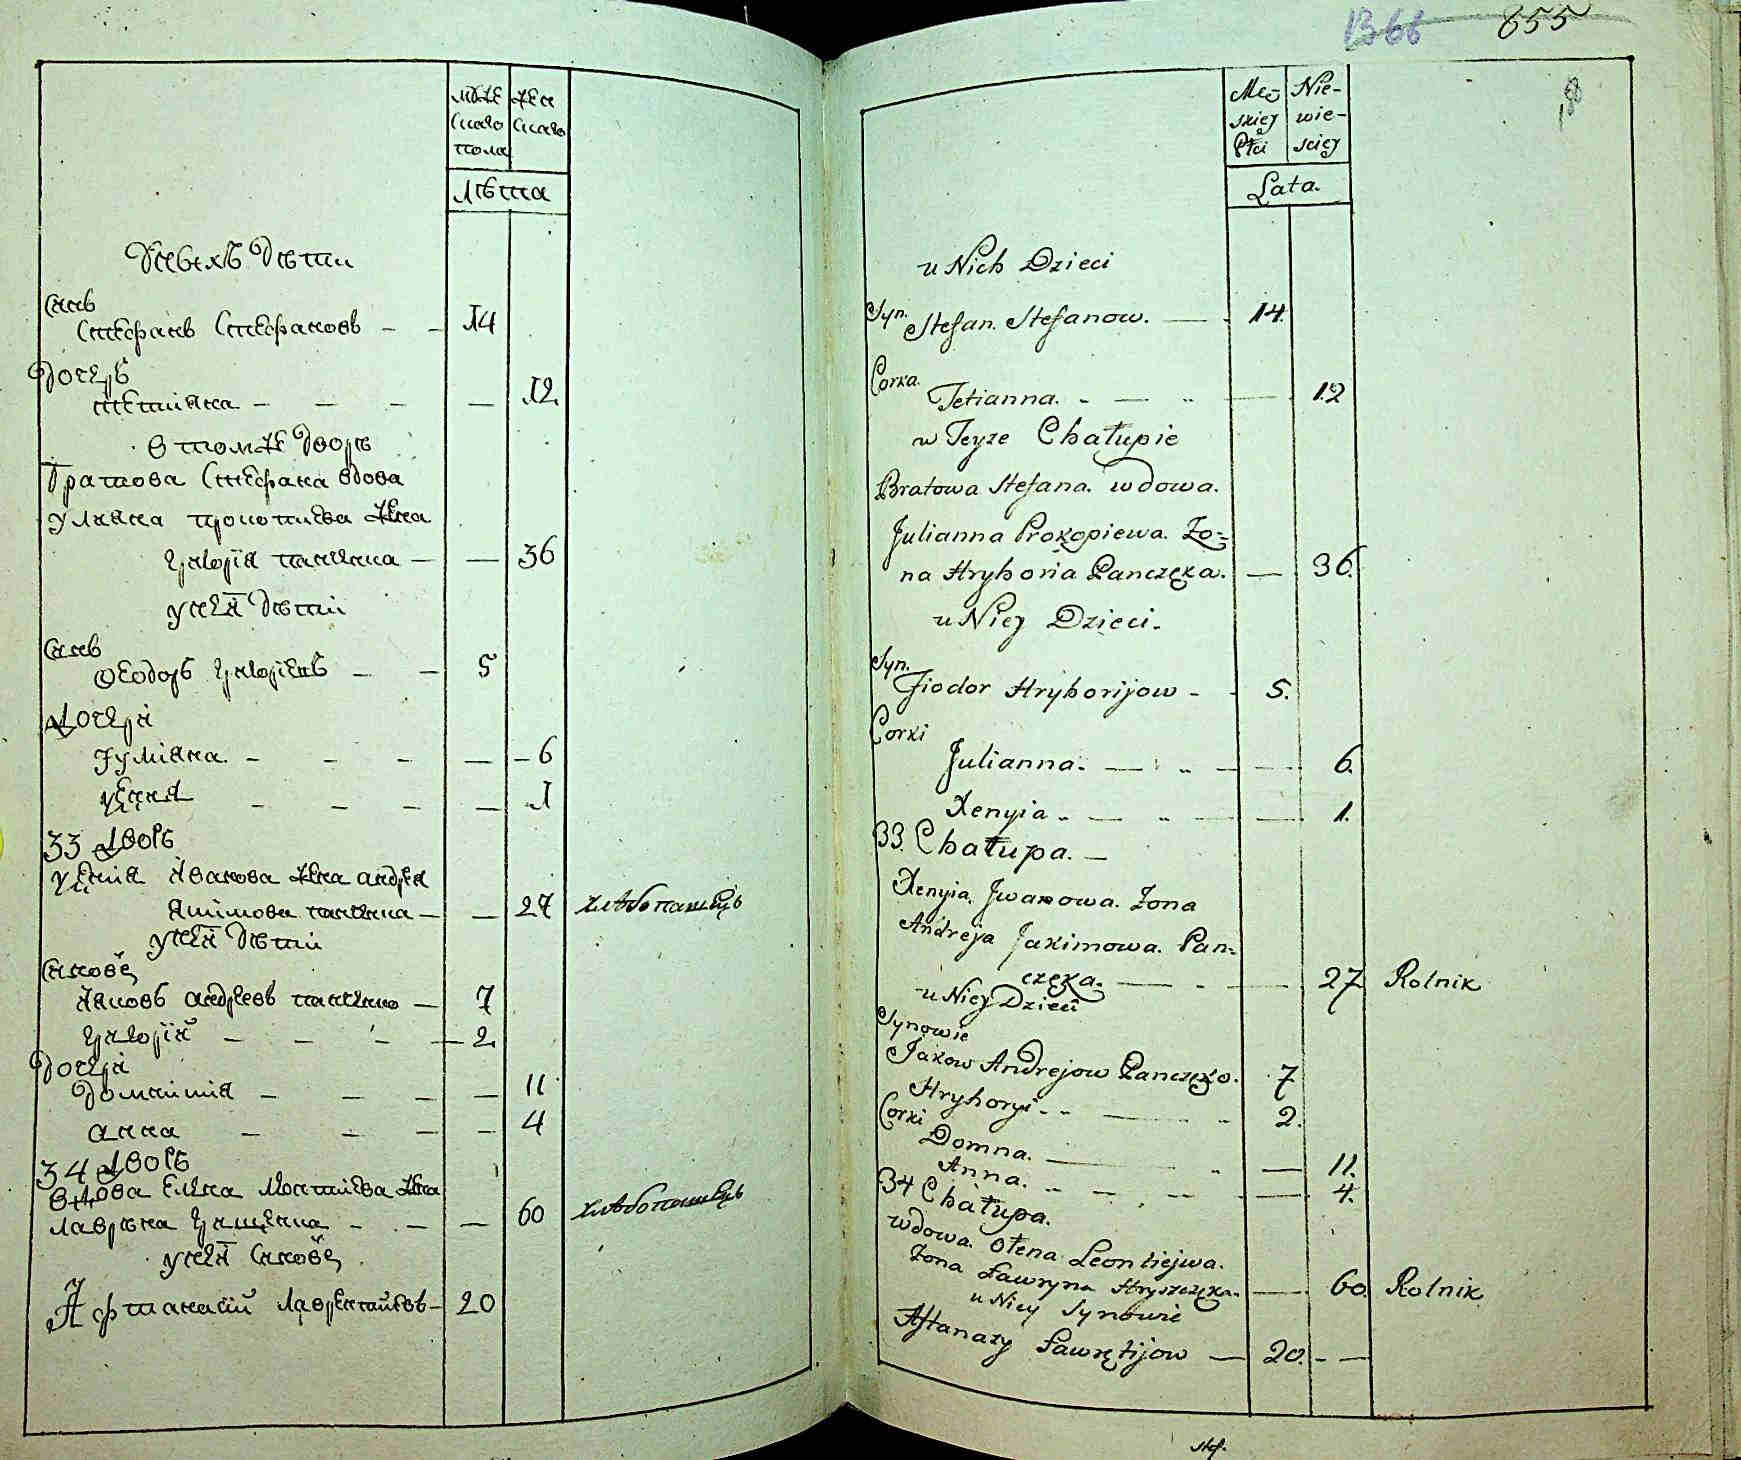 муже
скаго
пола
жен
скаго
лѣта
Унихъ дѣти
Синъ
Стефанъ Стефановъ — — 14
Дочеръ
Тетияна — — — — 12.
в томже дворѣ
Братова Стефана вдова
Улияна Прокопиева жена
Григорія Панченка — — 36
унея дѣти
Синъ
Феодоръ Григоріевъ — — 5
Дочери
Іулияна — — — — 6
— — — — 1
33 Дворъ
Іванова жена Андрея
Якимова Панченка — — 27 хлѣбопашецъ
унея дѣти
Синове
Яковъ Андреевъ Панченко — 7
Григорій — — — — 2
Дочери
— — — — 11
Анна — — — — 4
34 Дворъ
вдова Елена жена
— — — 60 хлѣбопашецъ
унея Синове
Афтанасій — 20
1366 655
Mę-
skiey
Płci
Nie-
wie-
sciey
Lata.
u Nich Dzieci
Syn.
Stefan. Stefanow. — 14.
Corka.
Tetianna. — — — 12
w Teyże Chałupie
Bratowa Stefana. wdowa.
Julianna Prokopiewa. Żo-
na Hryhoria Panczęka. — 36.
u Niey Dzieci.
Syn.
Fiodor Hryhorijow - - 5.
Corki
Julianna. — — — 6.
Xenyia — — — 1.
33. Chałupa. —
Xenyia. Jwanowa. Żona
Andreja Jakimowa. Pan-
częka. — — 27 Rolnik
u Niey Dzieci
Synowie
Jakow Andrejow Panczęko. 7
Hryhoryi — — 2.
Corki
Domna. — — — 11.
Anna. — — — 4.
34 Chałupa.
wdowa. Ołena Leontiejwa.
Żona Ławryna Hryszczęka. — 60. Rolnik
u Niey Synowie
Aftanazy Ławrętijow — 20. - —